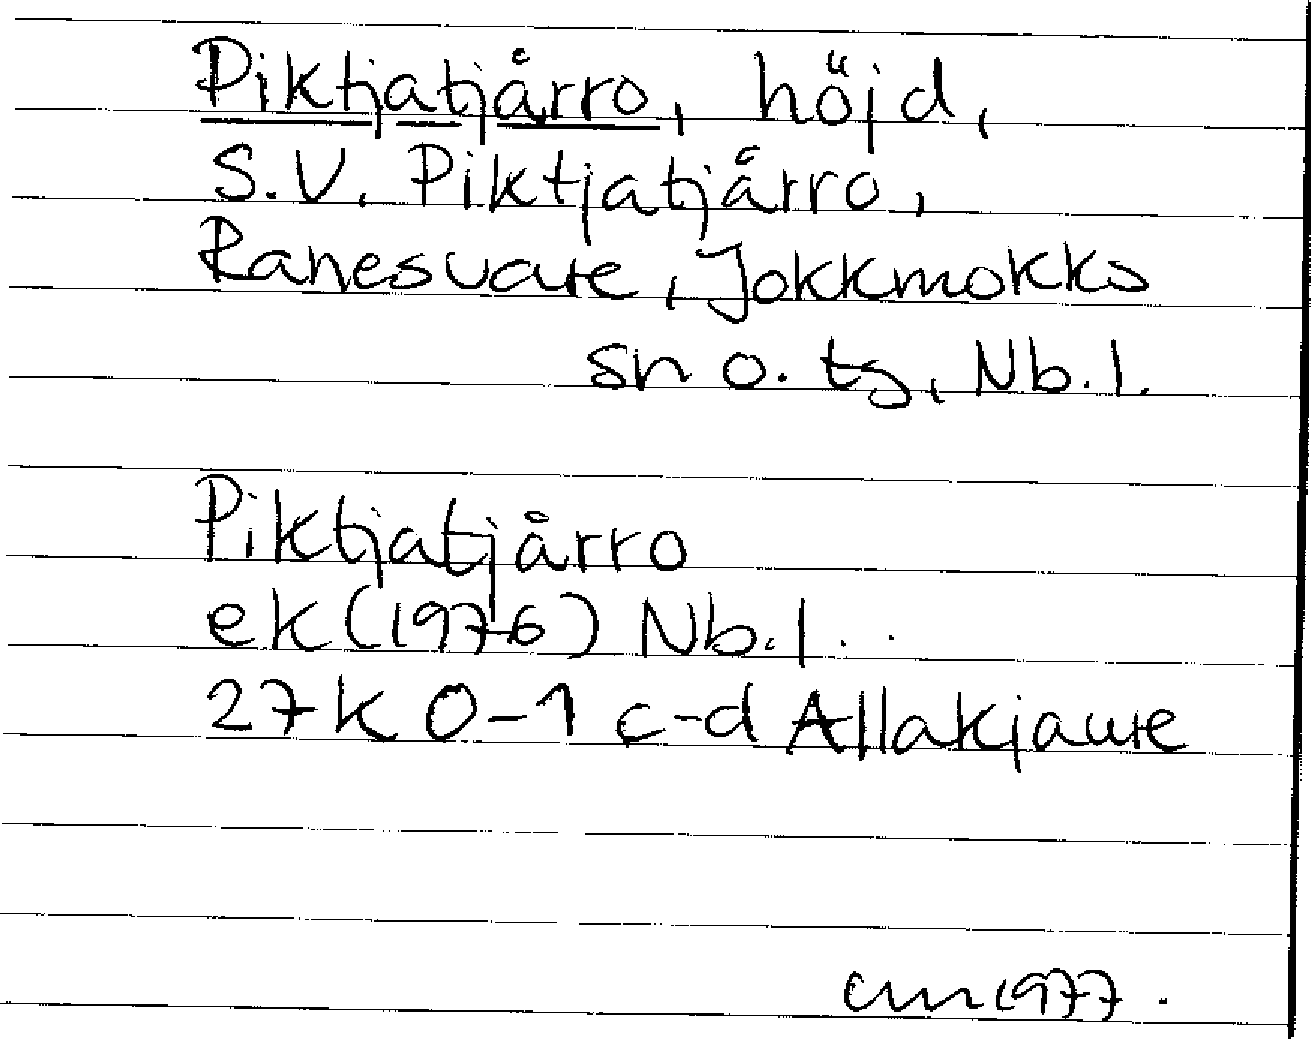 Piktjatjårro, höjd,
S.V. Piktjatjårro,
Ranesvare, Jokkmokks
sn o. tg, Nb.l.
Piktjatjårro
ek (1976) Nb.l.
27K 0-1 c-d Allakjaure
cm 1977.